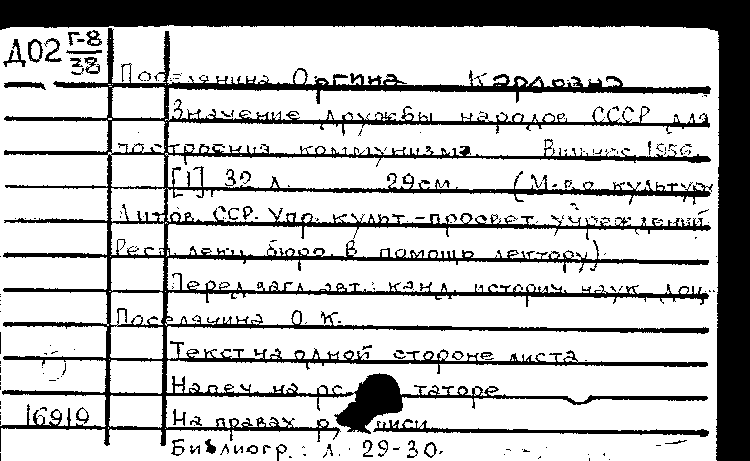 Д02 Г-8/38
Поселянина Оргина Карловна
Значение дружбы народов СССР для
построения коммунизма. Вильнюс, 1956.
[1], 32 л. 29см. (М-во культуры
Литов. ССР. Упр. культ.-просвет. учреждений.
Респ. лекц. бюро. В помощь лектору)
Перед загл. авт.: канд. историч. наук, доц.
Поселянина О. К.
Текст на одной стороне листа.
Напеч. на таторе
16919 На правах
Библиогр.: л. 29-30.